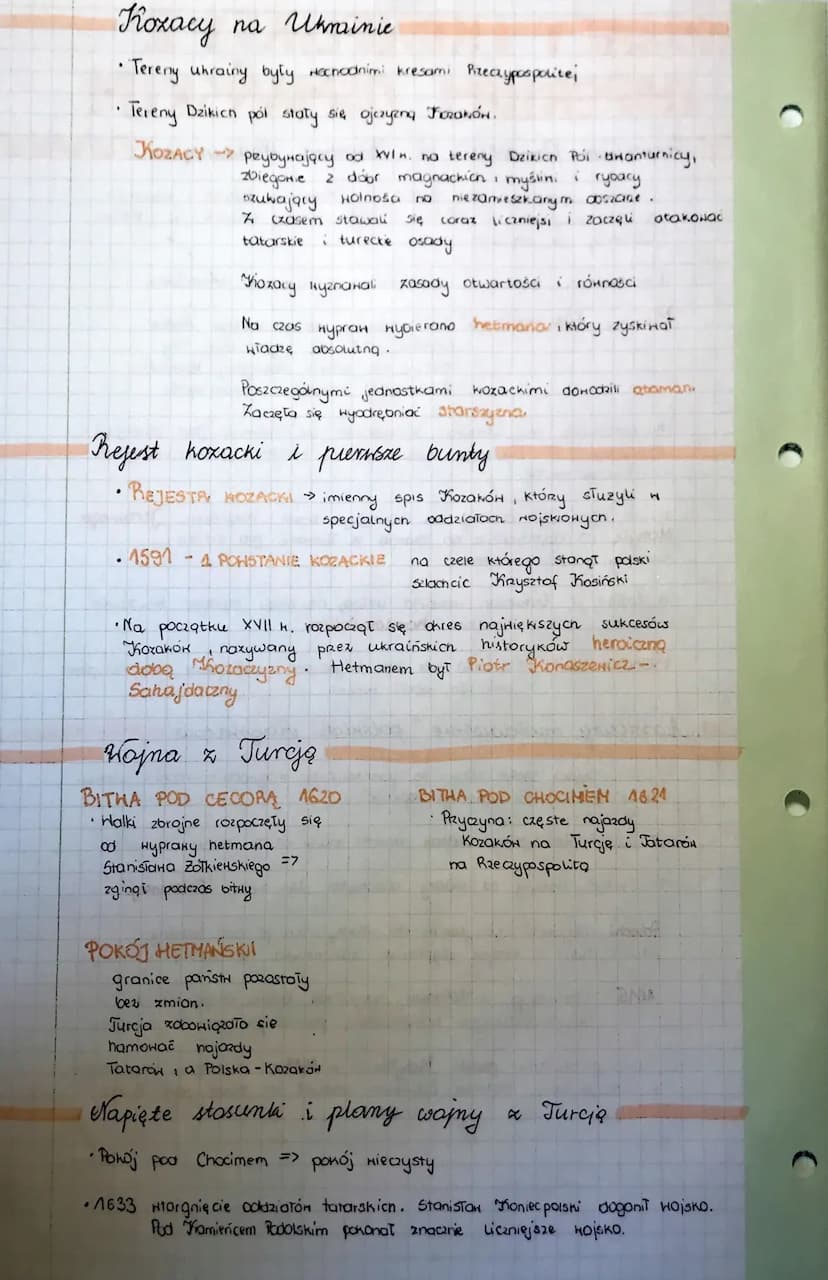 Kozacy na Ukrainie
• Tereny ukrainy były wschodnimi kresami Rzeczypospolitej
• Tereny Dzikich pól stały się ojczyzną Kozaków.
KOZACY → przybywający od XVI w. na tereny Dzikich Pól awanturnicy,
zbiegowie z dóbr magnackich i myśliwi i rybacy
szukający wolności na niezamieszkanym obszarze.
Z czasem stawali się coraz liczniejsi i zaczęli atakować
tatarskie i tureckie osady
Kozacy wyznawali zasady otwartości i równości
Na czas wypraw wybierano hetmana, który zyskiwał
władzę absolutną.
Poszczególnymi jednostkami kozackimi dowodzili ataman.
Zaczęła się wyodrębniać starszyzna
Rejest kozacki i pierwsze bunty
• REJESTR KOZACKI → imienny spis Kozaków, którzy służyli w
specjalnych oddziałach wojskowych.
• 1591 - 1 POWSTANIE KOZACKIE na czele którego stanął polski
szlachcic Krzysztof Kosiński
• Na początku XVII w. rozpoczął się okres największych sukcesów
Kozaków, nazywany przez ukraińskich historyków heroiczną
dobą Kozaczyzny. Hetmanem był Piotr Konaszewicz-
Sahajdaczny
Wojna z Turcją
BITWA POD CECORĄ 1620
• Walki zbrojne rozpoczęły się
od wyprawy hetmana
Stanisława Żółkiewskiego =>
zginął podczas bitwy
BITWA POD CHOCIMEM 1621
• Przyczyna: częste najazdy
Kozaków na Turcję i Tatarów
na Rzeczypospolitą
POKÓJ HETMAŃSKI
granice państw pozostały
bez zmian.
Turcja zobowiązała sie
hamować najazdy
Tatarów, a Polska - Kozaków
Napięte stosunki i plany wojny z Turcją
• Pokój pod Chocimem => pokój wieczysty
• 1633 wtorgnięcie oddziałów tatarskich. Stanisław Koniecpolski dogonił wojsko.
Pod Kamieńcem Podolskim pokonał znacznie liczniejsze wojsko.